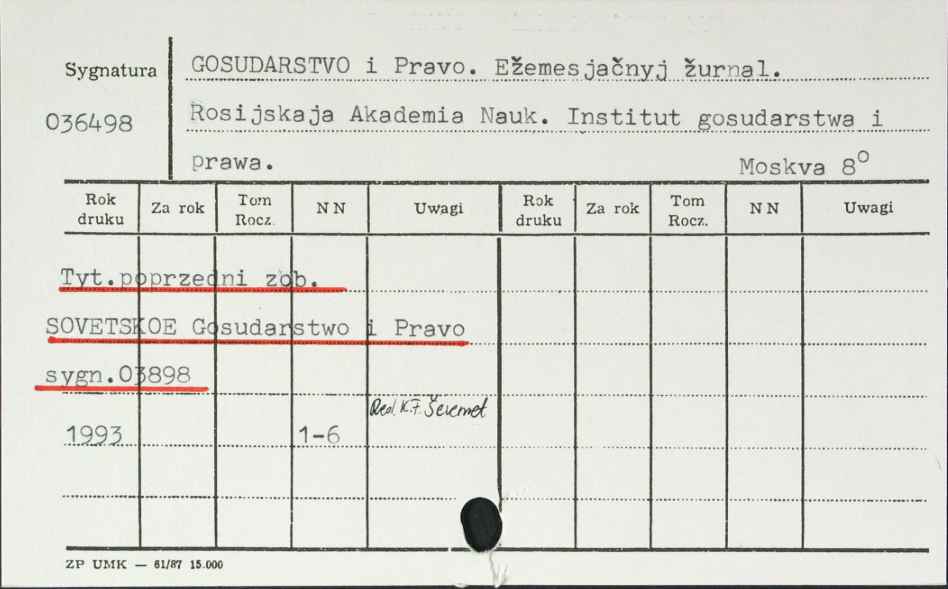 Sygnatura
GOSUDARSTVO i Pravo. Ežemesjačnyj žurnal.
036498
Rosijskaja Akademia Nauk. Institut gosudarstwa i
prawa.
Moskva 8°
Rok druku
Za rok
Tom Rocz.
NN
Uwagi
Rok druku
Za rok
Tom Rocz.
NN
Uwagi
Tyt.poprzedni zob.
SOVETSKOE Gosudarstwo i Pravo
sygn.03898
Red. K.F. Šeremet
1993
1-6
ZP UMK — 61/87 15.000